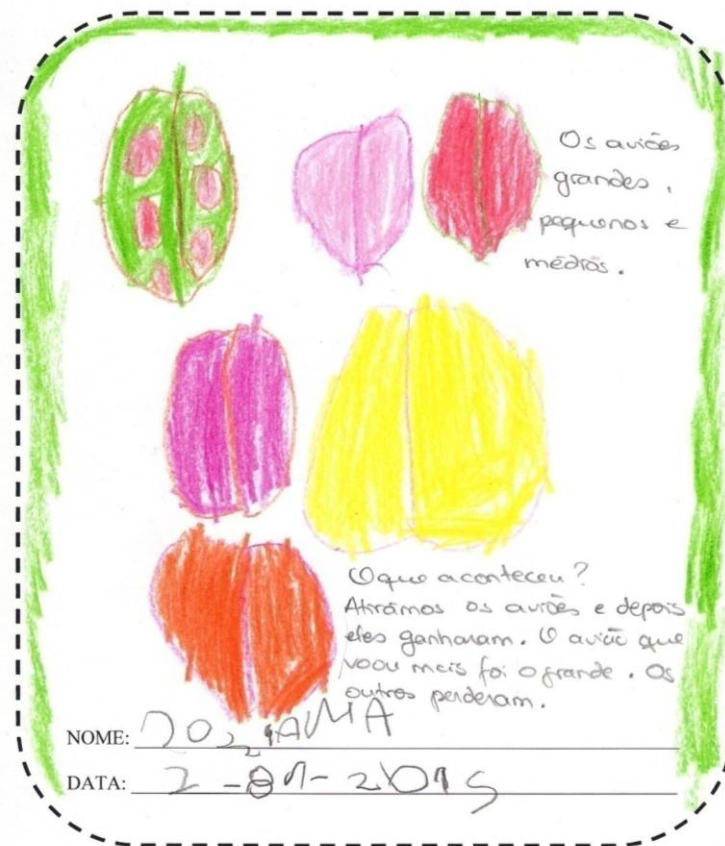 Os aviões
grandes,
pequenos e
médios.
O que aconteceu?
Atirámos os aviões e depois
eles ganharam. O avião que
voou mais foi o grande. Os
outros perderam.
NOME:
DATA: 2-01-2015